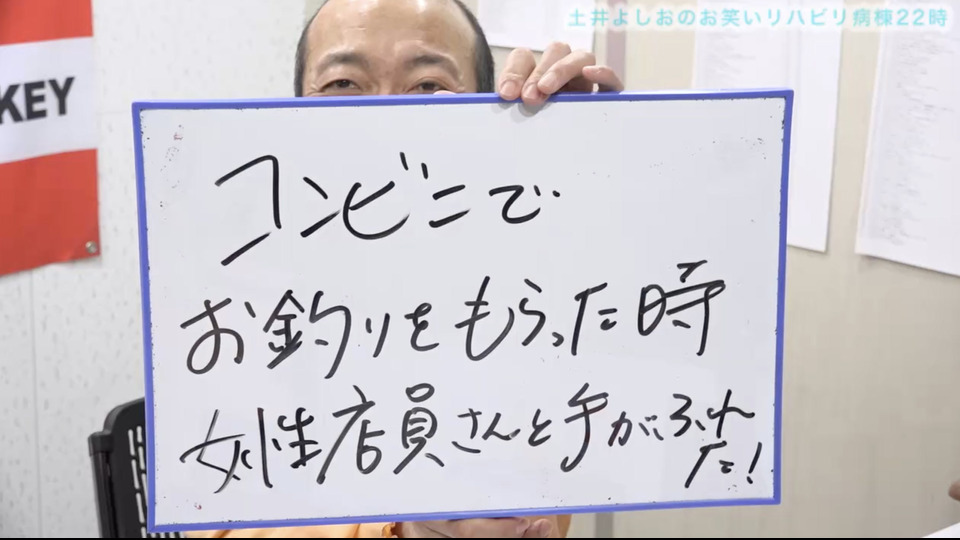 土井よしおのお笑いリハビリ病棟22時
KEY
コンビニで
お釣りをもらった時
女性店員さんと手がふれ
た!